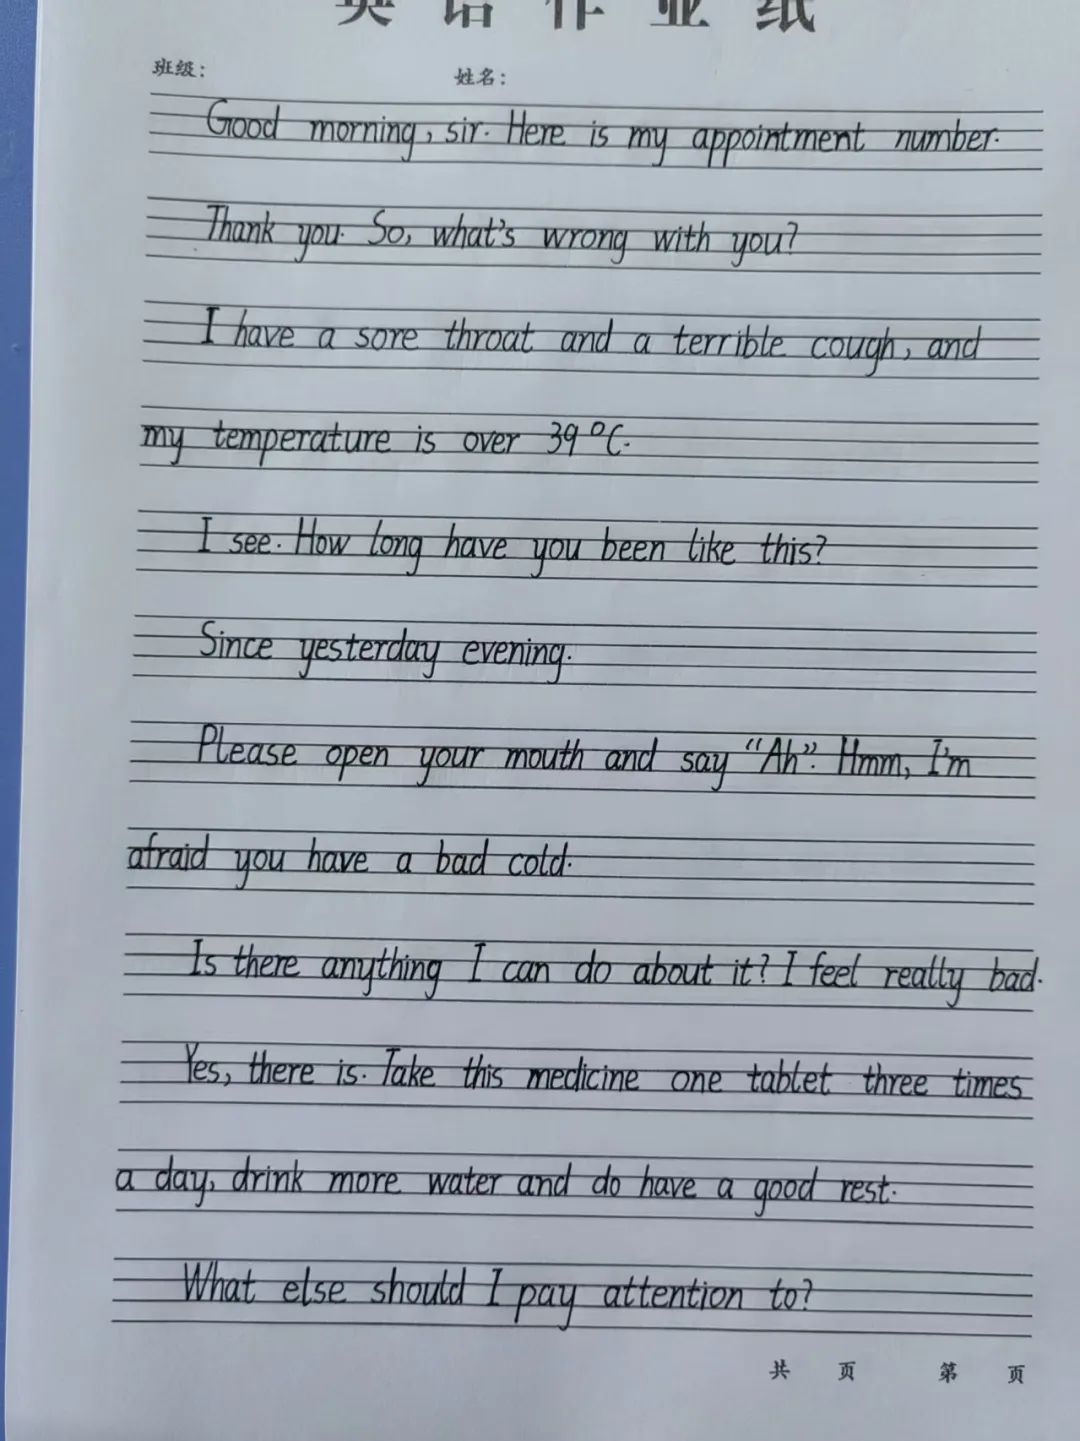 英语作业纸
班级: 姓名:
Good morning, sir. Here is my appointment number.
Thank you. So, what's wrong with you?
I have a sore throat and a terrible cough, and
my temperature is over 39℃.
I see. How long have you been like this?
Since yesterday evening.
Please open your mouth and say “Ah”. Hmm, I'm
afraid you have a bad cold.
Is there anything I can do about it? I feel really bad.
Yes, there is. Take this medicine one tablet three times
a day, drink more water and do have a good rest.
What else should I pay attention to?
共 页 第 页